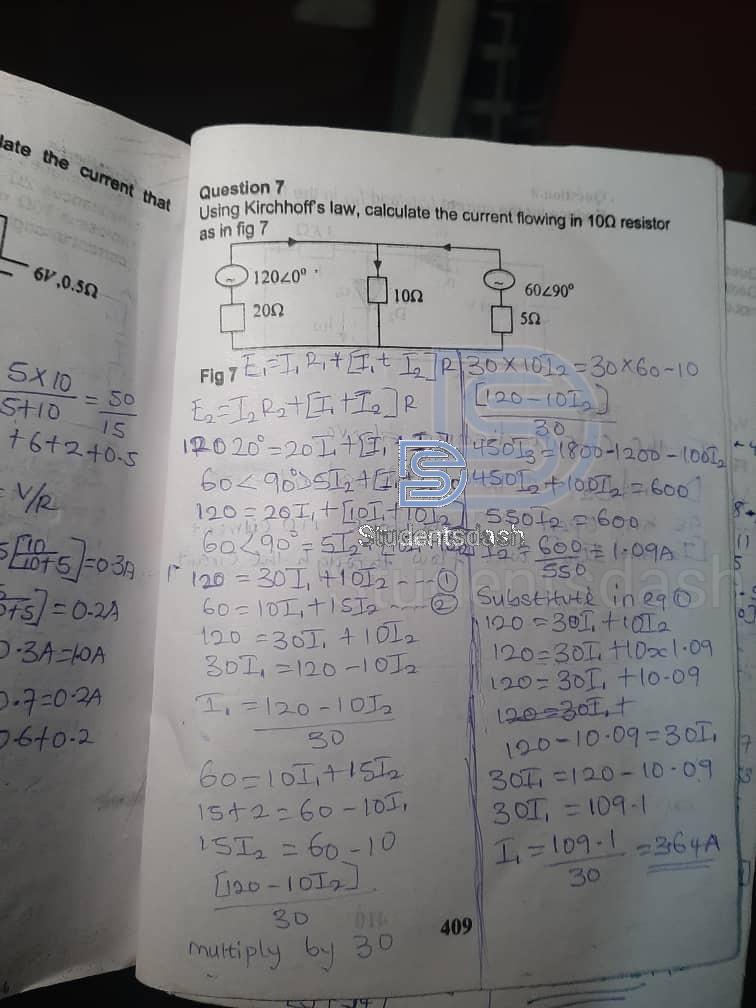 late the current that
6V,0.5Ω
5×10 = 50
5+10 15
+6+2+0.5
= V/R
=0.3A
=0.2A
0.3A=1.0A
0.7=0.2A
0.6+0.2
Question 7
Using Kirchhoff's law, calculate the current flowing in 10Ω resistor
as in fig 7
120∠0°
20Ω
10Ω
60∠90°
5Ω
Fig 7
E₁=I₁R₁+[I₁+I₂]R
E₂=I₂R₂+[I₁+I₂]R
120 20°=20I₁+[I₁
60<90°>5I₂+[I
120=20I₁+[10I₁+10I₂
60<90°=5I₂
120=30I₁+10I₂----①
60=10I₁+15I₂----②
120=30I₁+10I₂
30I₁=120-10I₂
I₁=120-10I₂
30
60=10I₁+15I₂
15+2=60-10I₁
15I₂=60-10
[120-10I₂]
30
multiply by 30
30×10I₂=30×60-10
[120-10I₂]
30
450I₃=1800-1200-100I₂
450I₂+100I₂=600
550I₂=600
I₂=600=1.09A
550
Substitute in eq①
120=30I₁+10I₂
120=30I₁+10x1.09
120=30I₁+10.09
120=30I₁+
120-10.09=30I₁
30I₁=120-10.09
30I₁=109.1
I₁=109.1=3.64A
30
409
Studentsdash
Studentsdash